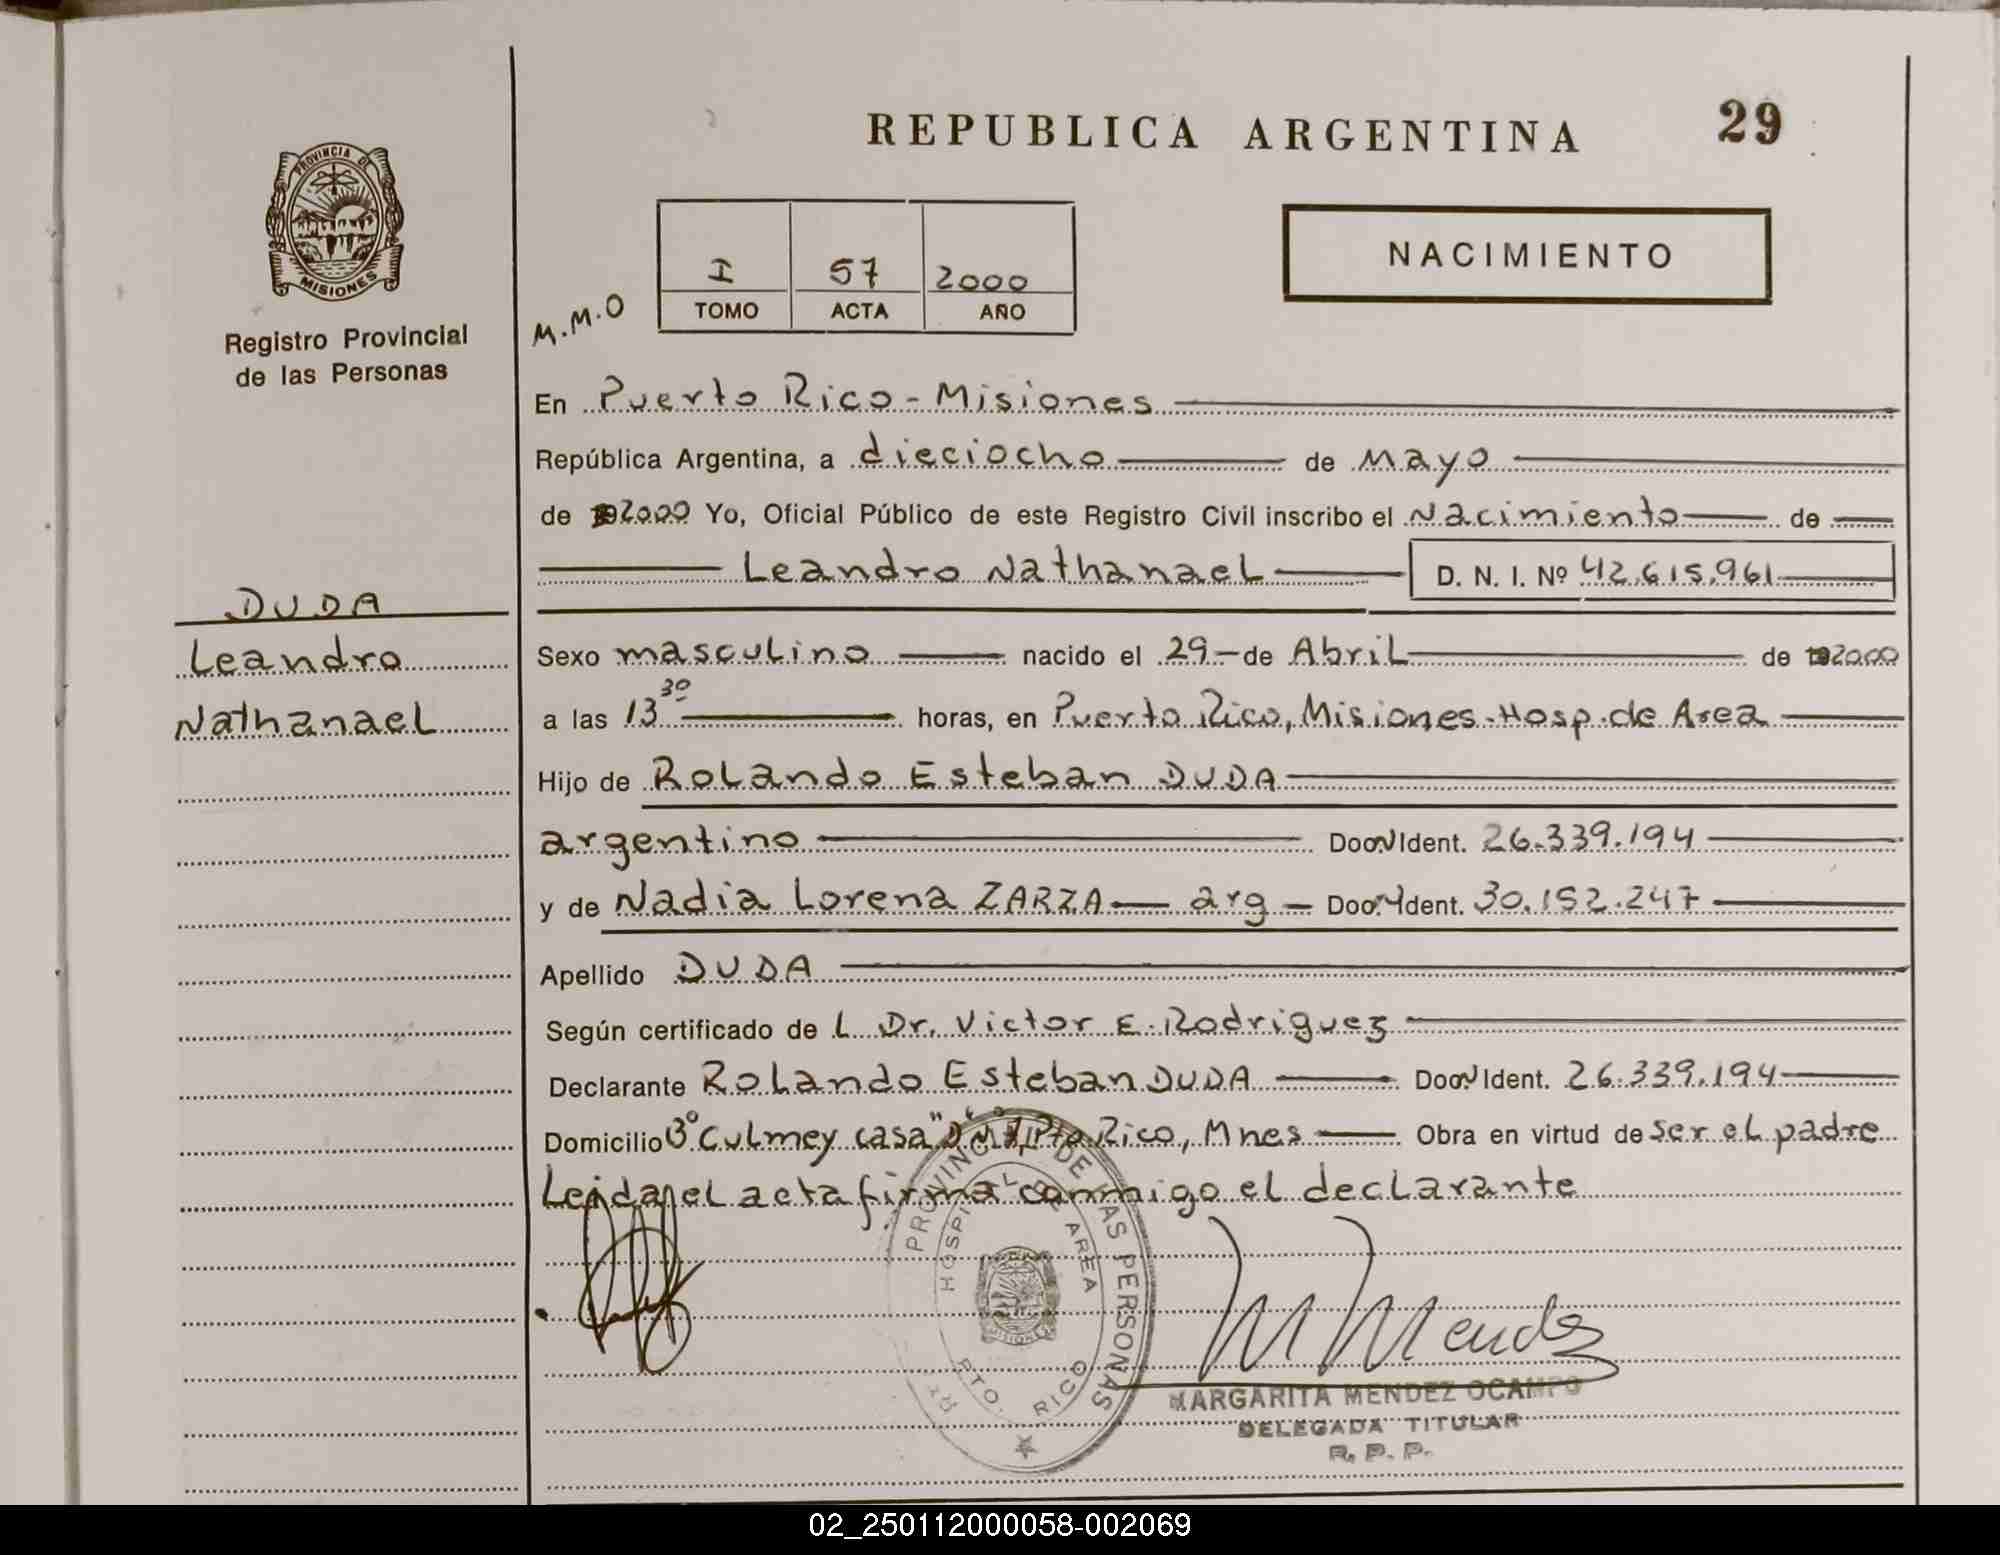 REPUBLICA ARGENTINA
29
PROVINCIA DE
MISIONES
Registro Provincial
de las Personas
M.M.O
I 57 2000
TOMO ACTA AÑO
NACIMIENTO
En Puerto Rico - Misiones
República Argentina, a dieciocho de Mayo
de 2000 Yo, Oficial Público de este Registro Civil inscribo el Nacimiento de
Leandro Nathanael D. N. I. Nº 42.615.961
DUDA
Leandro
Nathanael
Sexo masculino nacido el 29 - de Abril de 2000
a las 13 30 horas, en Puerto Rico, Misiones - Hosp. de Area
Hijo de Rolando Esteban DUDA
argentino Doc. N Ident. 26.339.194
y de Nadia Lorena ZARZA — arg — Doc. N Ident. 30.152.247
Apellido DUDA
Según certificado de L Dr. Victor E. Rodriguez
Declarante Rolando Esteban DUDA Doc. N Ident. 26.339.194
Domicilio Bº Culmey casa Pto Rico, Mnes Obra en virtud de ser el padre
Leida el acta firma conmigo el declarante
PROVINCIAL DE LAS PERSONAS
HOSPITAL DE AREA
MISIONES
PTO. RICO
M Mendez
MARGARITA MENDEZ OCAMPO
DELEGADA TITULAR
R. P. P.
02_250112000058-002069